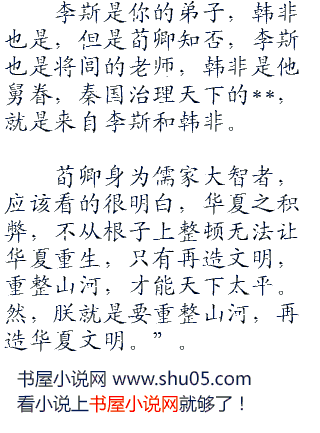 李斯是你的弟子，韩非
也是，但是荀卿知否，李斯
也是将闾的老师，韩非是他
舅眷，秦国治理天下的**，
就是来自李斯和韩非。
荀卿身为儒家大智者，
应该看的很明白，华夏之积
弊，不从根子上整顿无法让
华夏重生，只有再造文明，
重整山河，才能天下太平。
然，朕就是要重整山河，再
造华夏文明。”。
书屋小说网 www.shu05.com
看小说上书屋小说网就够了！